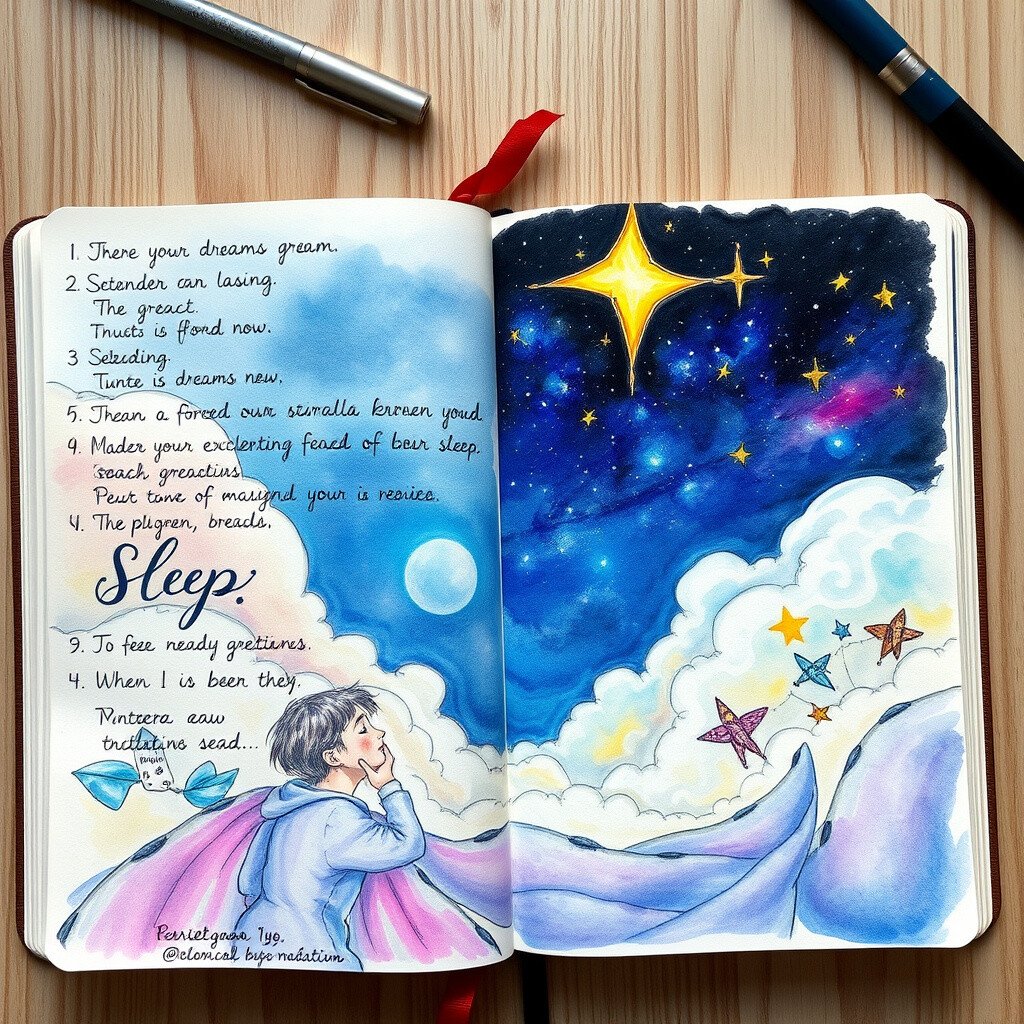 1. There your dreams gream.
2. Setender can lasing.
The greact.
Thucts is fford now.
3 Selzcding.
Tunte is dreams new,
5. Thean a forced oum starralla krreen youd
9. Mader your exclerting feacd of bear sleep.
seach greactius
Peut tane of mauyond your is recice.
4. The pligren, breads,
Sleep.
9. To feze neady gretines.
4. When I is been they.
eaw
sead...
Perrietgown Iyo.